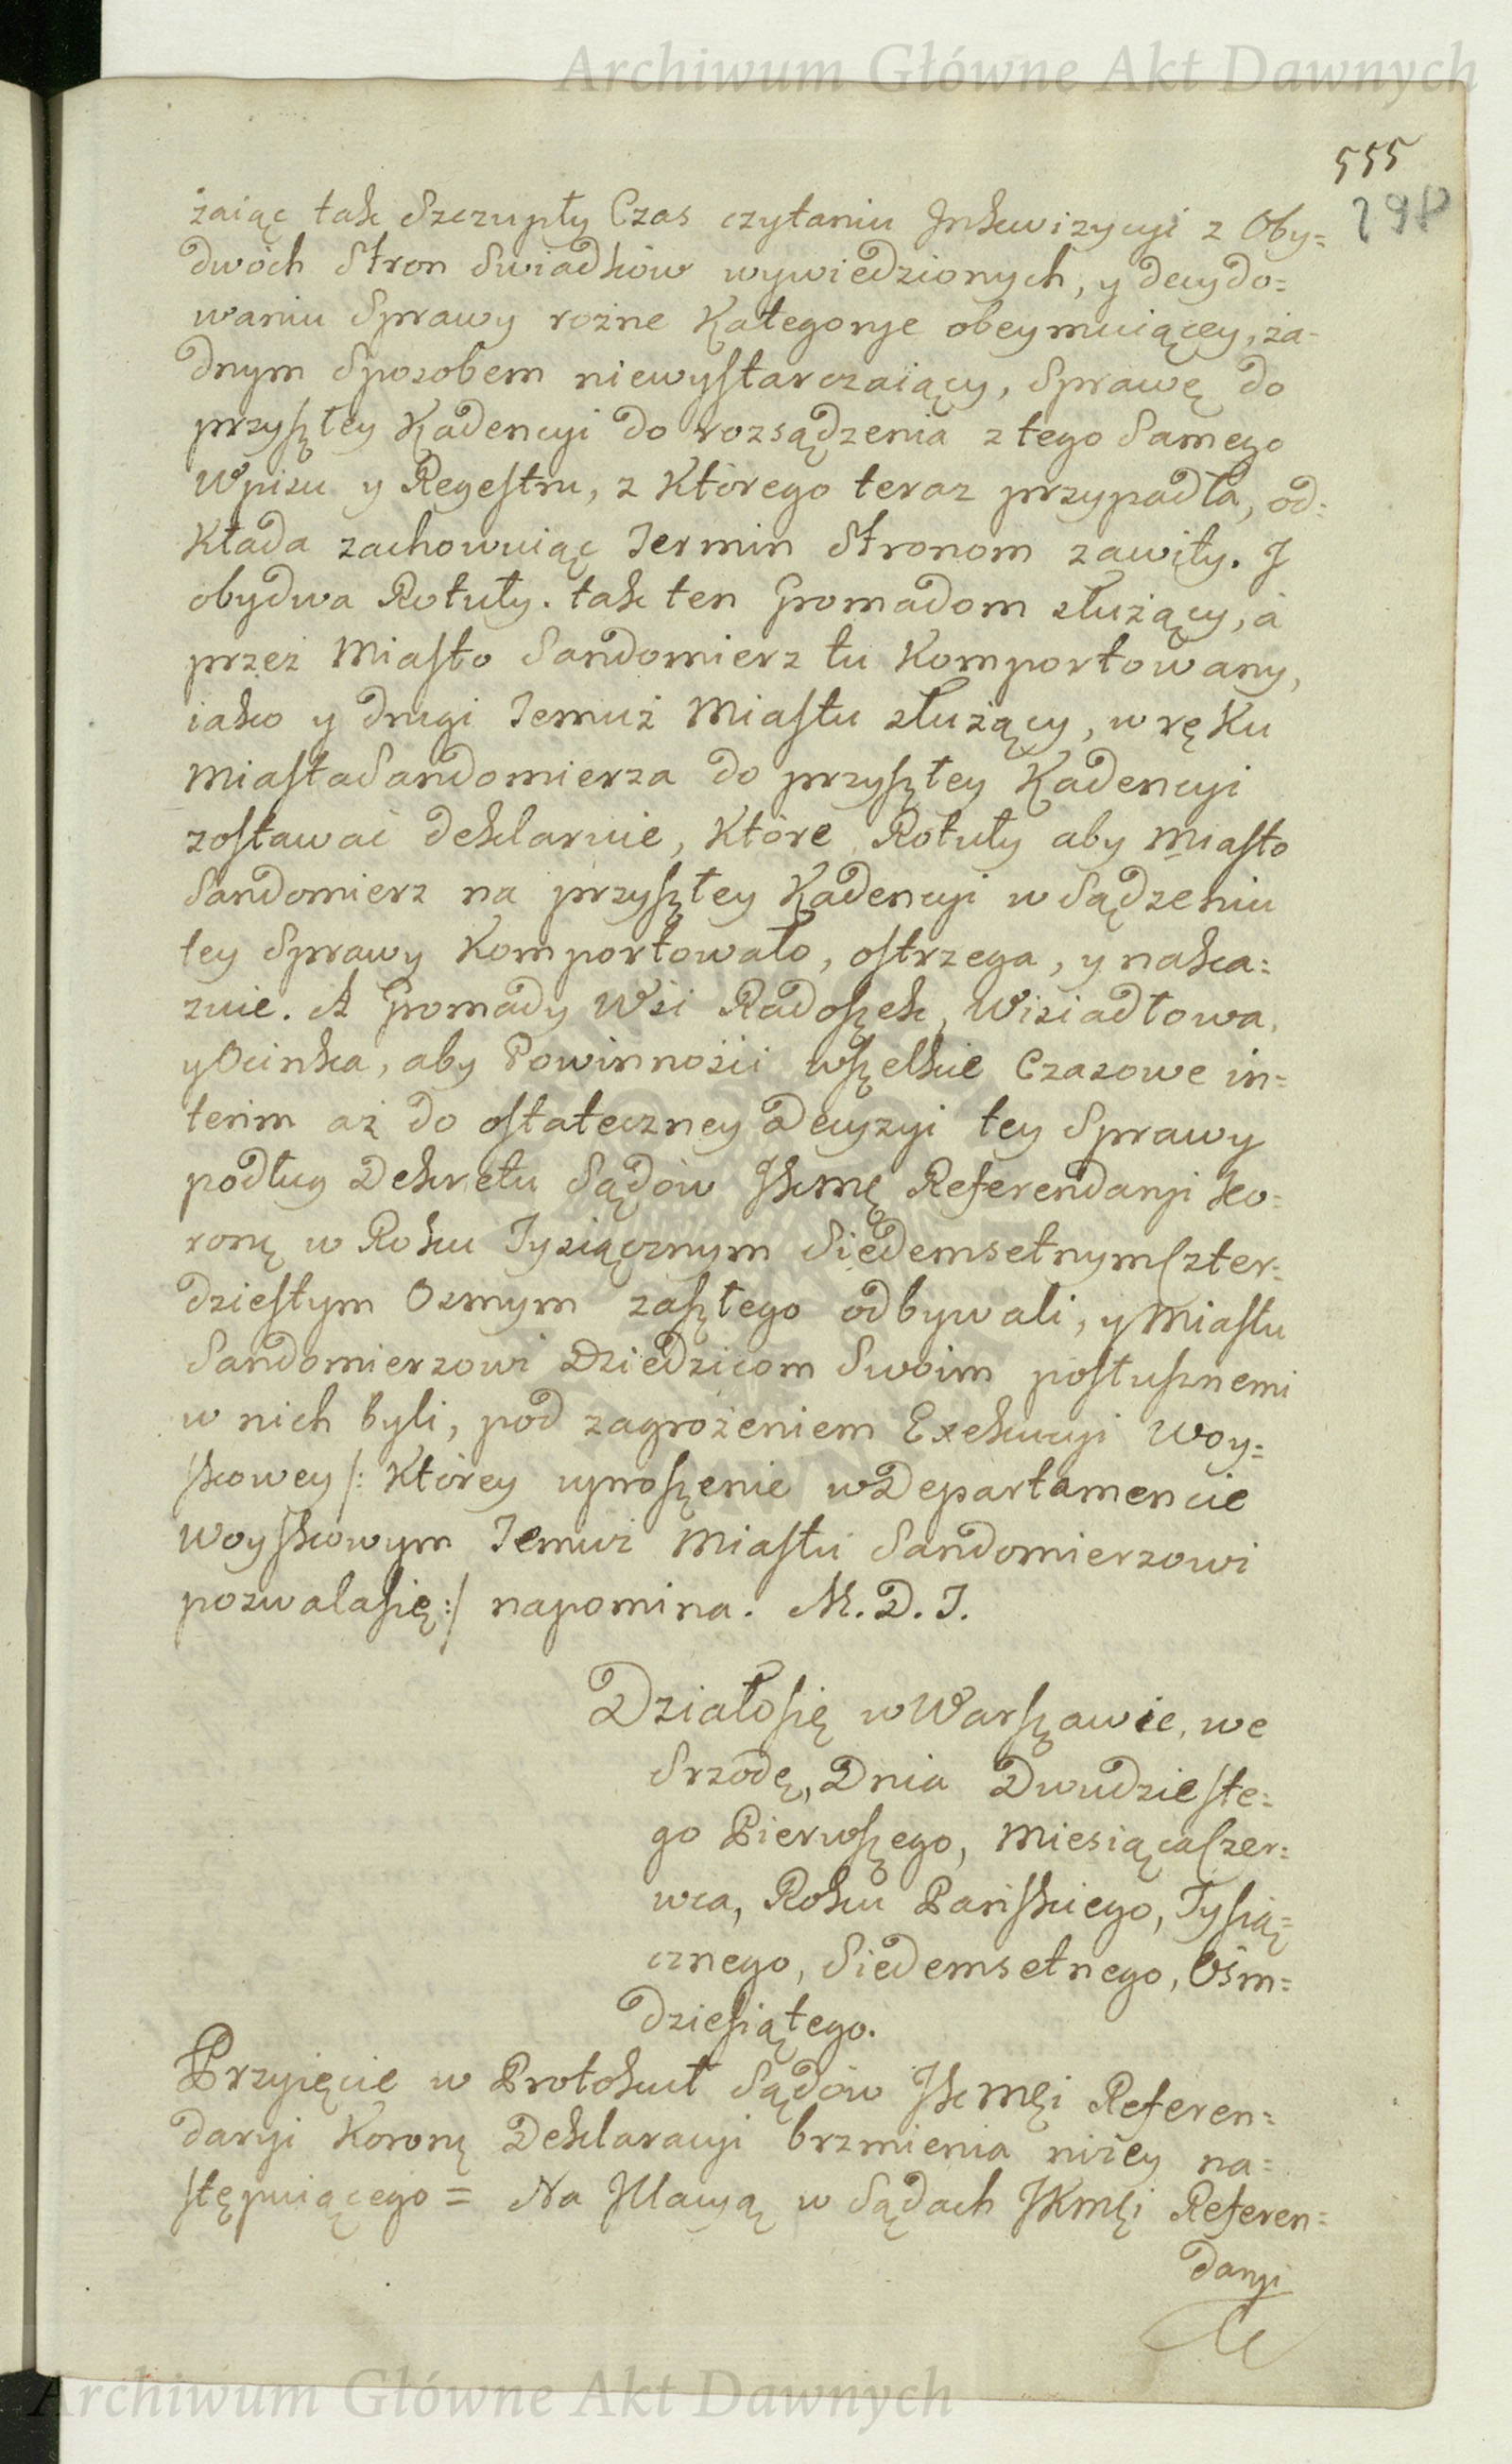 Archiwum Główne Akt Dawnych
555
298
żaiąc tak Szczupły Czas czytaniu Inkwizycyi z Oby=
dwóch Stron Swiadków wywiedzionych, y decydo=
waniu Sprawy rożne Kategorye obeymuiącey, ża-
dnym Sposobem niewystarczaiący, Sprawę do
przyszłey Kadencyi do rozsądzenia z tego Samego
Wpisu y Regestru, z Którego teraz przypadła, od=
Kłada zachowuiąc Termin Stronom zawiły. I
obydwa Rotuły. tak ten Gromadom służący, a
przez Miasto Sandomierz tu Komportowany,
iako y drugi Temuż Miastu służący, w ręKu
Miasta Sandomierza do przyszłey Kadencyi
zostawać deklaruie, Które Rotuły aby Miasto
Sandomierz na przyszłey Kadencyi w Sądzeniu
tey Sprawy Komportowało, ostrzega, y naka=
zuie. A Gromady Wsi Radoszek, Wisiadłowa,
y Ocinka, aby Powinności wszelkie Czasowe in=
terim aż do ostateczney Decyzyi tey Sprawy
podług Dekretu Sądów JKmę Referendaryi Ko=
ronę w Roku Tysiącznym Siedemsetnym Czter=
dziestym Osmym zaszłego odbywali, y Miastu
Sandomierzowi Dziedzicom Swoim posłusznemi
w nich byli, pod zagrożeniem Exekucyi Woy=
skowey /: Którey uproszenie w Departamencie
Woyskowym Temuż Miastu Sandomierzowi
pozwala się :/ napomina. M. D. I.
Działo się w Warszawie, we
Srzodę, Dnia Dwudzieste=
go Pierwszego, Miesiąca Czer=
wca, Roku Pańskiego, Tysią=
cznego, Siedemsetnego, Ośm=
dziesiątego.
Przyięcie w Protokuł Sądów JKmęi Referen=
daryi Koronę Deklaracyi brzmienia niżey na=
stępuiącego = Na Illacyą w Sądach JKmęi Referen=
daryi
Archiwum Główne Akt Dawnych